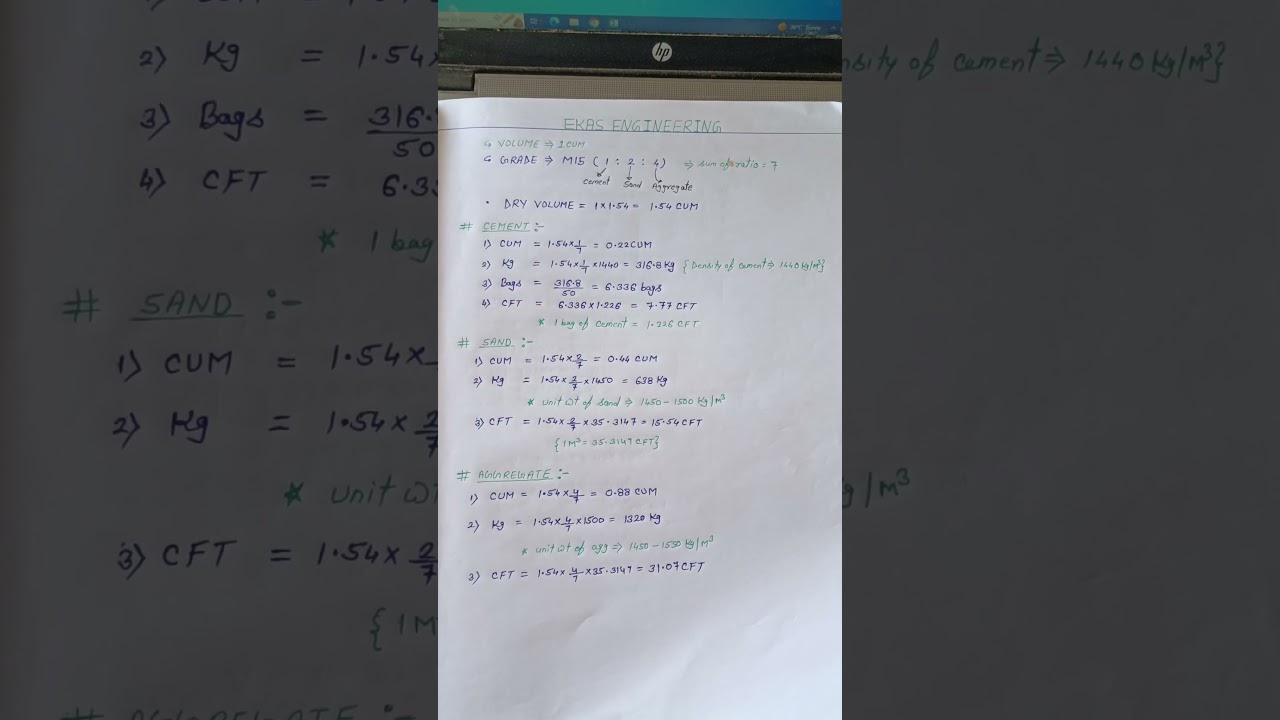 hp
EKAS ENGINEERING
↳ VOLUME ⇒ 1 CUM
↳ GRADE ⇒ M15 ( 1 : 2 : 4 ) ⇒ sum of ratio = 7
Cement Sand Aggregate
• DRY VOLUME = 1 × 1.54 = 1.54 CUM
# CEMENT :-
1) CUM = 1.54 × 1/7 = 0.22 CUM
2) Kg = 1.54 × 1/7 × 1440 = 316.8 Kg { Density of cement ⇒ 1440 Kg/M³}
3) Bags = 316.8/50 = 6.336 bags
4) CFT = 6.336 × 1.226 = 7.77 CFT
* 1 bag of cement = 1.226 CFT
# SAND :-
1) CUM = 1.54 × 2/7 = 0.44 CUM
2) Kg = 1.54 × 2/7 × 1450 = 638 Kg
* unit wt of sand ⇒ 1450 - 1500 Kg/M³
3) CFT = 1.54 × 2/7 × 35.3147 = 15.54 CFT
{ 1 M³ = 35.3147 CFT}
# AGGREGATE :-
1) CUM = 1.54 × 4/7 = 0.88 CUM
2) Kg = 1.54 × 4/7 × 1500 = 1320 Kg
* unit wt of agg ⇒ 1450 - 1550 Kg/M³
3) CFT = 1.54 × 4/7 × 35.3147 = 31.07 CFT